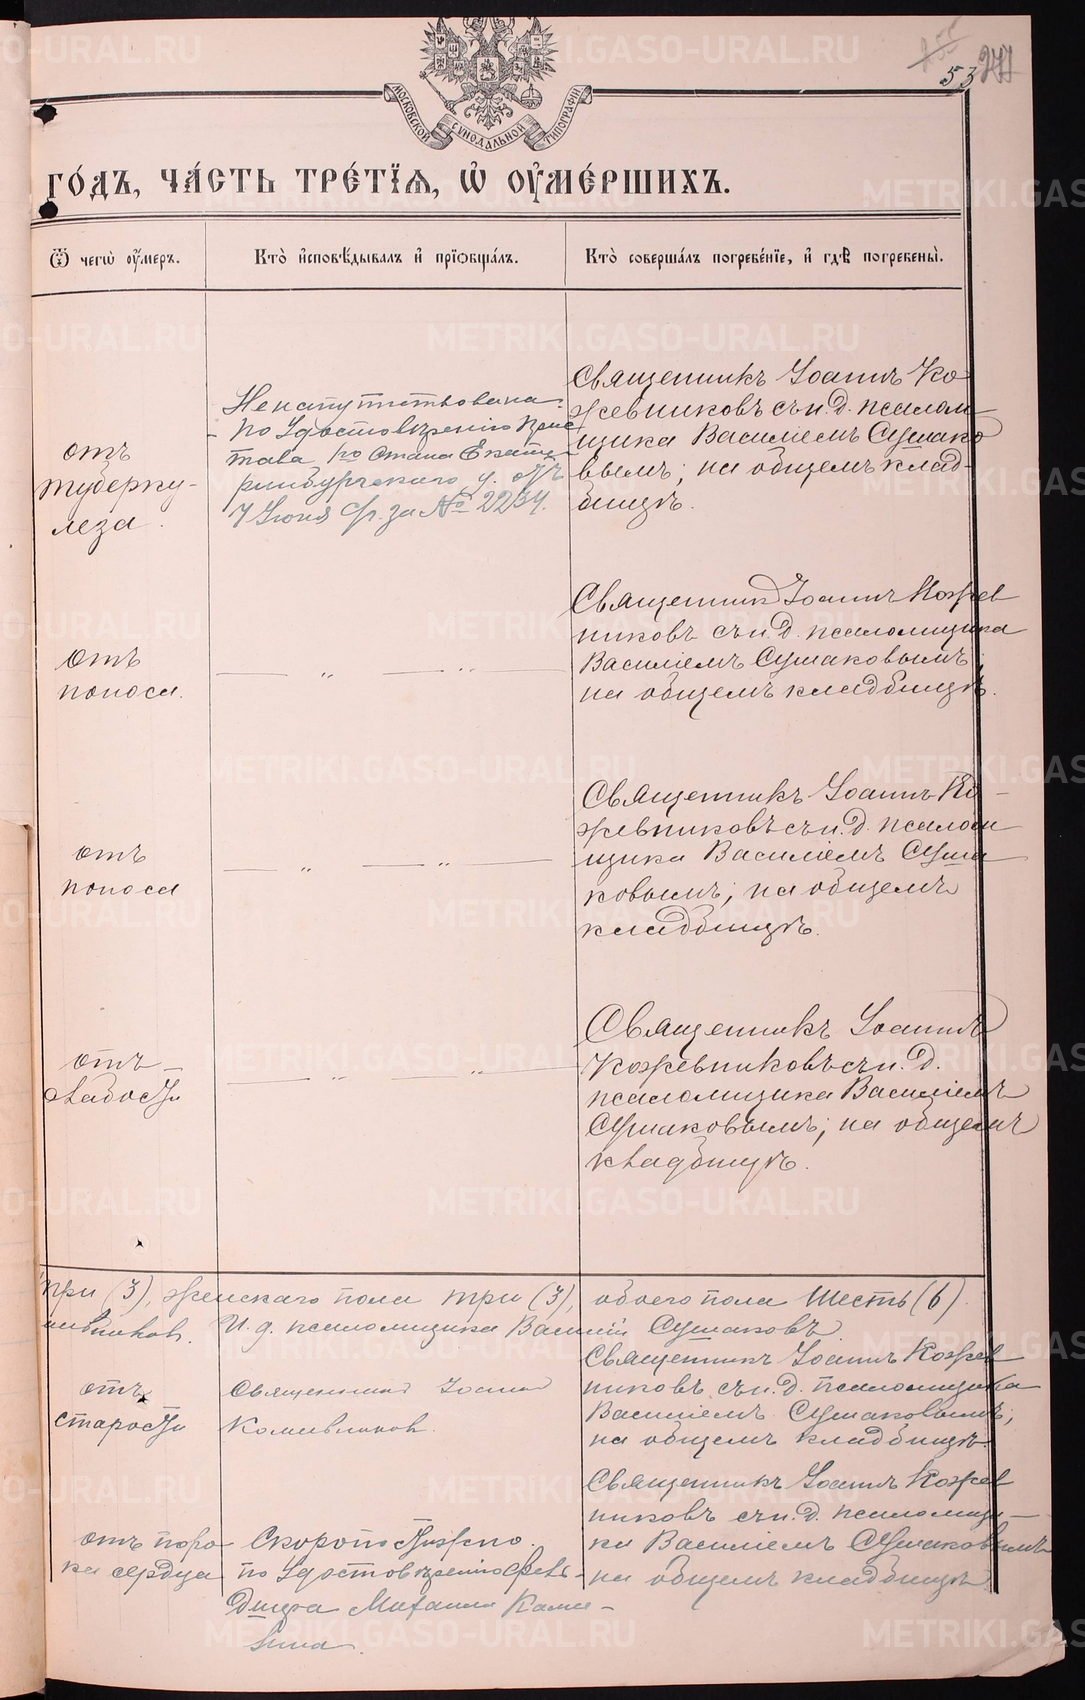 53
МОСКОВСКОЙ СѴНОДАЛЬНОЙ ТИПОГРАФІИ
ГО́ДЪ, ЧА́СТЬ ТРЕ́ТЇѦ, Ѡ҆ ОУ҆МЕ́РШИХЪ.
Ѿ чегѡ̀ оу҆́меръ.
Кто̀ и҆сповѣ́дывалъ и҆ прїѻбща́лъ.
Кто̀ соверша́лъ погребе́нїе, и҆ гдѣ̀ погребены̀.
отъ
туберку-
леза.
Не напутствована
по удостовѣренію Прис
тава го стана Екате-
ринбургскаго у. отъ
7 Іюня с/г. за № 2234.
Священникъ Іоаннъ Ко
жевниковъ съ и. д. псалом
щика Василіемъ Сушако
вымъ; на общемъ клад-
бищѣ.
отъ
поноса.
— „ — „ —
Священник Іоаннъ Кожев
никовъ съ и. д. псаломщика
Василіемъ Сушаковымъ;
на общемъ кладбищѣ.
отъ
поноса
— „ — „ —
Священникъ Іоаннъ Ко-
жевниковъ съ и. д. псалом
щика Василіемъ Суша
ковымъ; на общемъ
кладбищѣ.
отъ
слабости
— „ — „ —
Священникъ Іоаннъ
Кожевниковъ съ и. д.
псаломщика Василіемъ
Сушаковымъ; на общемъ
кладбищѣ.
три (3), женскаго пола три (3), обоего пола шесть (6).
И. д. псаломщика Василій Сушаковъ
отъ
старости
Священник Іоанн
Священникъ Іоаннъ Кожев
никовъ съ и. д. псаломщика
Василіемъ Сушаковымъ;
на общемъ кладбищѣ.
отъ поро
ка сердца
Скоропостижно.
по удостовѣренію фель-
дшера Михаила
Священникъ Іоаннъ Кожев
никовъ съ и. д. псаломщи-
ка Василіемъ Сушаковымъ
на общемъ кладбищѣ
METRIKI.GASO-URAL.RU